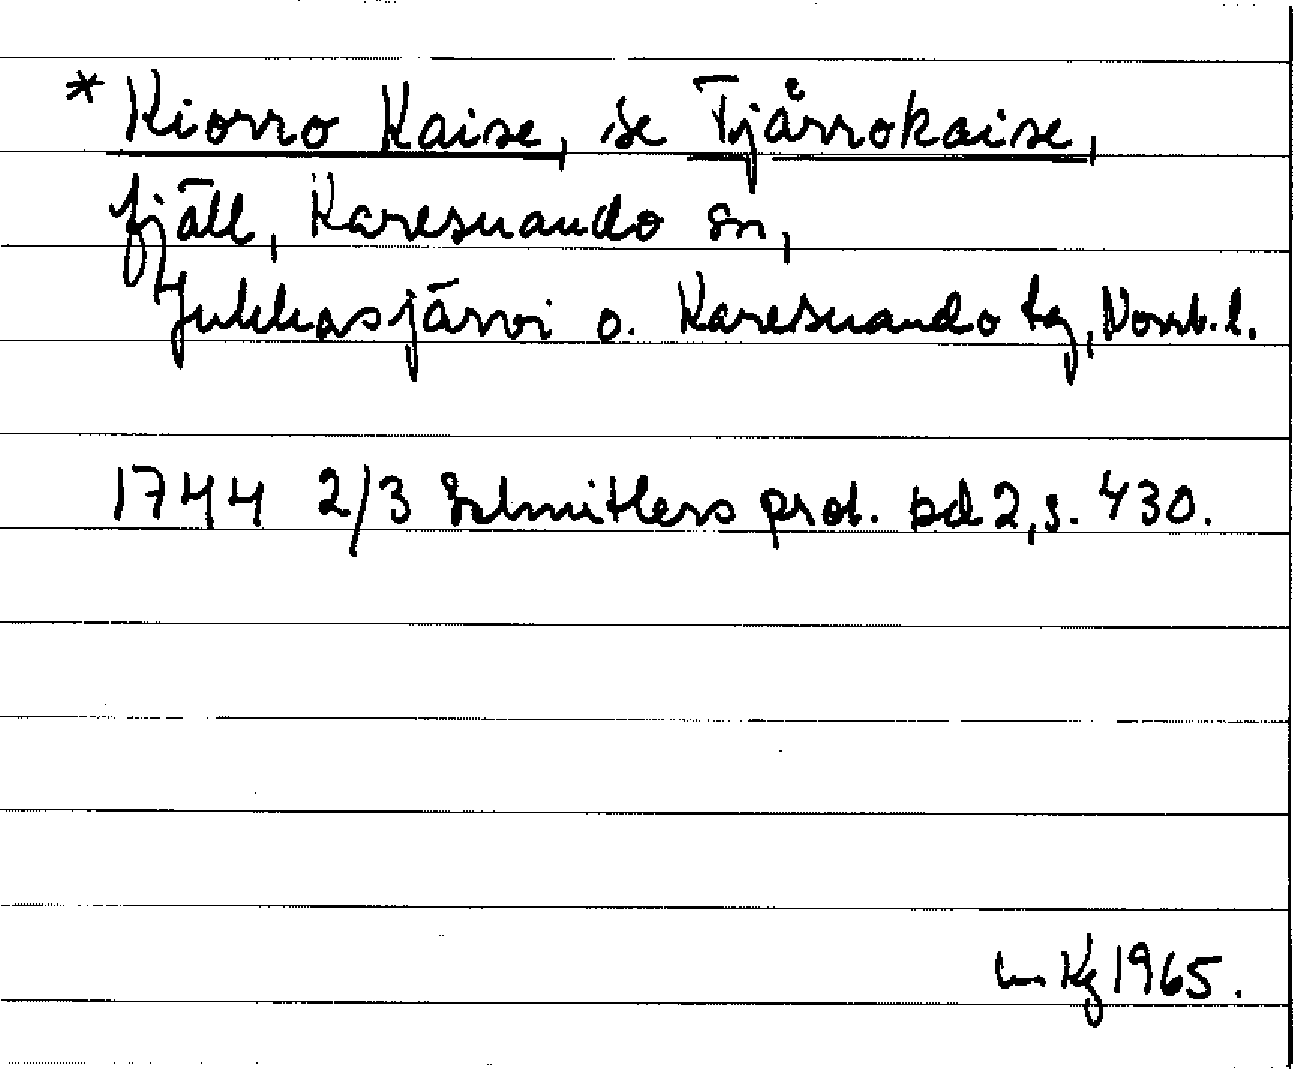 * Kiorro Kaise, se Tjårrokaise,
fjäll, Karesuando sn,
Jukkasjärvi o. Karesuando tg, Norrb. l.
1744 2/3 Schnitlers prot. bd 2, s. 430.
Kg 1965.